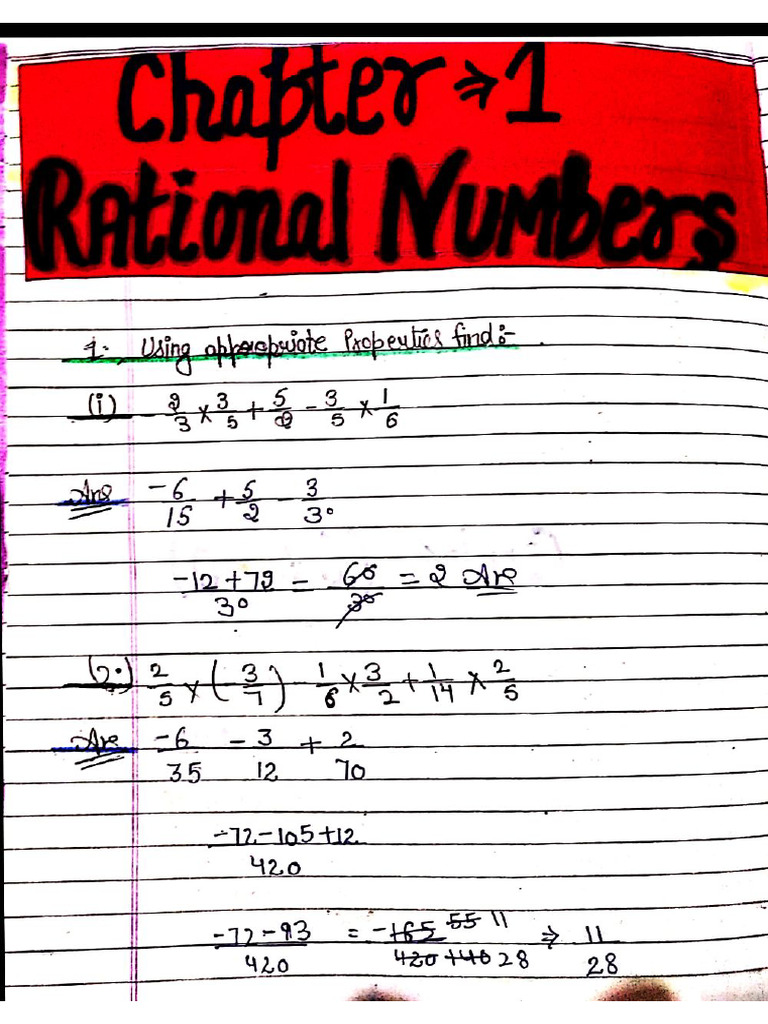 Chapter ⇒ 1
Rational Numbers
1. Using appropriate Properties find:-
(i) -2/3 × 3/5 + 5/2 - 3/5 × 1/6
Ans -6/15 + 5/2 - 3/30
-12+72/30 = 60/30 = 2 Ans
(2.) 2/5 × (-3/7) - 1/6 × 3/2 + 1/14 × 2/5
Ans -6/35 - 3/12 + 2/70
-72-105+12/420
-72-93/420 = -165 55 11/420 140 28 ⇒ 11/28